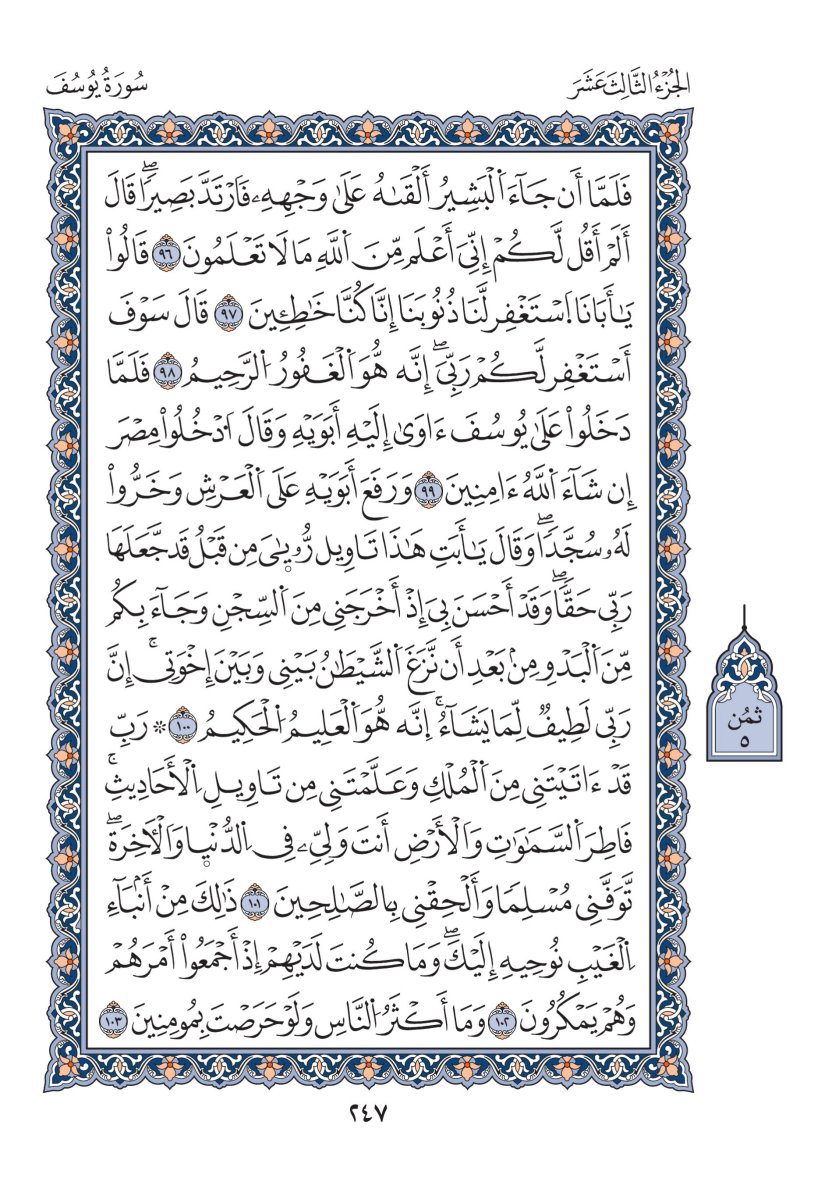 الجُزْءُ الثَّالِثَ عَشَرَ
سُورَةُ يُوسُفَ
فَلَمَّا أَن جَآءَ اَ۬لْبَشِيرُ أَلْقَىٰهُ عَلَىٰ وَجْهِهِۦ فَارْتَدَّ بَصِيرٗاۖ قَالَ
أَلَمْ أَقُل لَّكُمْ إِنِّيَ أَعْلَم مِّنَ اَ۬للَّهِ مَا لَا تَعْلَمُونَ ٩٦ قَالُواْ
يَٰأَبَانَا اَ۪سْتَغْفِر لَّنَا ذُنُوبَنَا إِنَّا كُنَّا خَٰطِـِٕينَ ٩٧ قَالَ سَوْفَ
أَسْتَغْفِر لَّكُمْ رَبِّيَۖ إِنَّه هُّوَ اَ۬لْغَفُورُ اُ۬لرَّحِيمُ ٩٨ فَلَمَّا
دَخَلُواْ عَلَىٰ يُوسُفَ ءَاوَىٰ إِلَيْهِ أَبَوَيْهِ وَقَالَ اَ۟دْخُلُواْ مِصْرَ
إِن شَآءَ اَ۬للَّهُ ءَامِنِينَ ٩٩ وَرَفَعَ أَبَوَيْهِ عَلَى اَ۬لْعَرْشِ وَخَرُّواْ
لَهُۥ سُجَّدٗاۖ وَقَالَ يَٰأَبَتِ هَٰذَا تَاوِيل رُّويَٰيَ مِن قَبْلُ قَد جَّعَلَهَا
رَبِّي حَقّٗاۖ وَقَدْ أَحْسَنَ بِيَ إِذْ أَخْرَجَنِي مِنَ اَ۬لسِّجْنِ وَجَآءَ بِكُم
مِّنَ اَ۬لْبَدْوِ مِنۢ بَعْدِ أَن نَّزَغَ اَ۬لشَّيْطَٰنُ بَيْنِي وَبَيْنَ إِخْوَتِيۚ إِنَّ
رَبِّي لَطِيفٞ لِّمَا يَشَآءُۚ إِنَّه هُّوَ اَ۬لْعَلِيمُ اُ۬لْحَكِيمُ ١٠٠ ۞ رَبِّ
قَدْ ءَاتَيْتَنِي مِنَ اَ۬لْمُلْكِ وَعَلَّمْتَنِي مِن تَاوِيلِ اِ۬لْأَحَادِيثِۚ
فَاطِرَ اَ۬لسَّمَٰوَٰتِ وَالْأَرْضِ أَنتَ وَلِيِّۦ فِي اِ۬لدُّنْيۭا وَالْأٓخِرَةِۖ
تَّوَفَّنِي مُسْلِمٗا وَأَلْحِقْنِي بِالصَّٰلِحِينَ ١٠١ ذَٰلِكَ مِنْ أَنۢبَآءِ
اِ۬لْغَيْبِ نُوحِيهِ إِلَيْكَۖ وَمَا كُنتَ لَدَيْهِمْ إِذْ أَجْمَعُواْ أَمْرَهُمْ
وَهُمْ يَمْكُرُونَ ١٠٢ وَمَا أَكْثَرُ اُ۬لنَّاسِ وَلَوْ حَرَصْتَ بِمُومِنِينَ ١٠٣
ثُمُن
٥
٢٤٧